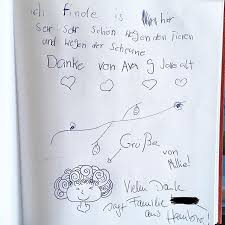 ich finde is hir
ser ser schön wegen den tieren
und wegen der scheune
Danke von Ava 9 Jare alt
Grüße
von
Vielen Dank
sagt Familie
aus Hamburg!